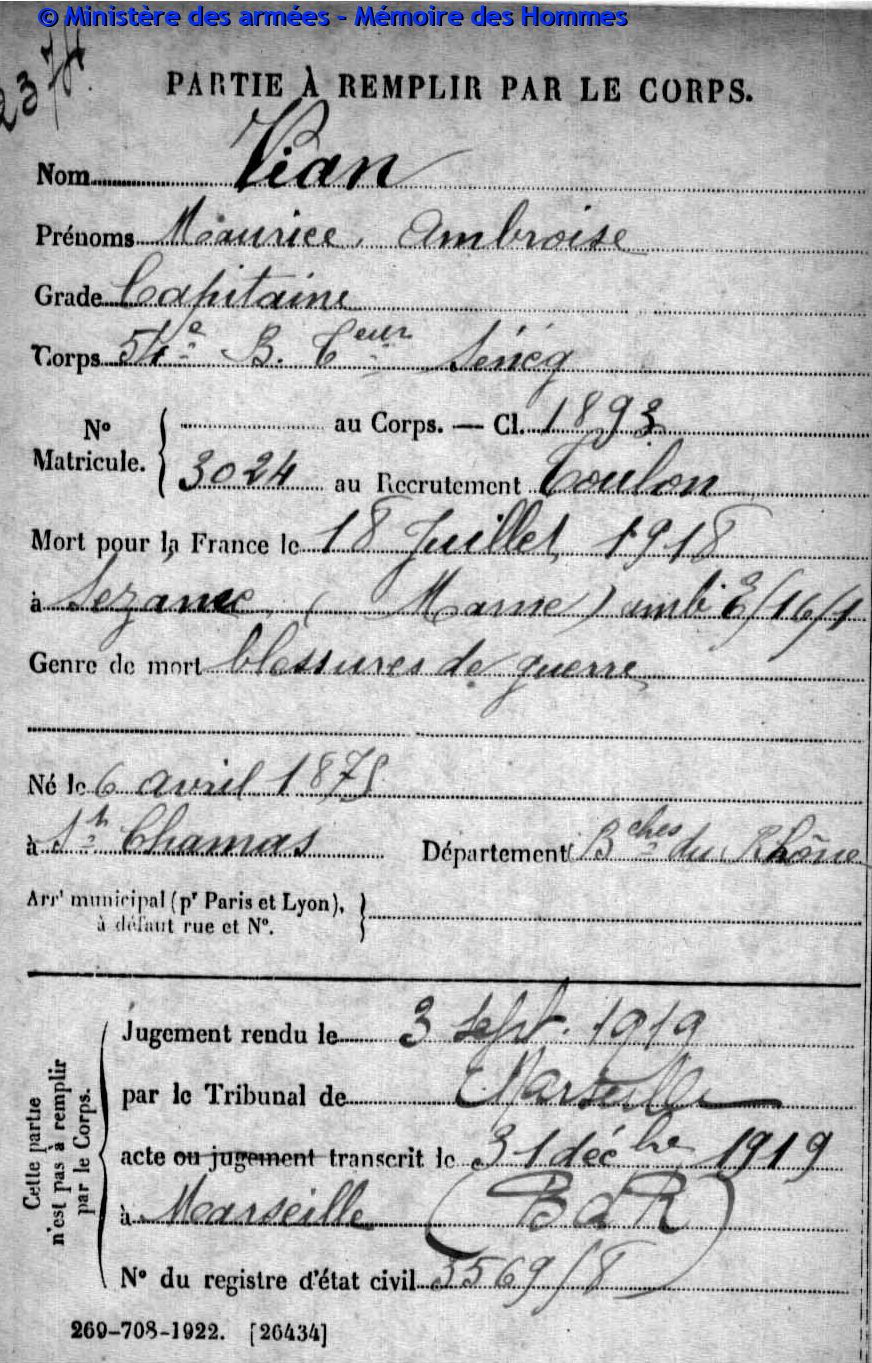 © Ministère des armées - Mémoire des Hommes
PARTIE À REMPLIR PAR LE CORPS.
Nom Vian
Prénoms Maurice, Ambroise
Grade Capitaine
Corps 54e B. Ceur Sénég
No Matricule. { au Corps. — Cl. 1893
3024 au Recrutement Toulon
Mort pour la France le 18 Juillet 1918
à Sezanne (Marne) amb. 16/1
Genre de mort blessures de guerre
Né le 6 avril 1875
à St Chamas Département Bches du Rhône
Arrt municipal (pr Paris et Lyon), à défaut rue et No. }
Cette partie n'est pas à remplir par le Corps.
Jugement rendu le 3 Sept. 1919
par le Tribunal de Marseille
acte ou jugement transcrit le 31 décbre 1919
à Marseille (B d R)
No du registre d'état civil 3569/8
269-708-1922. [26434]